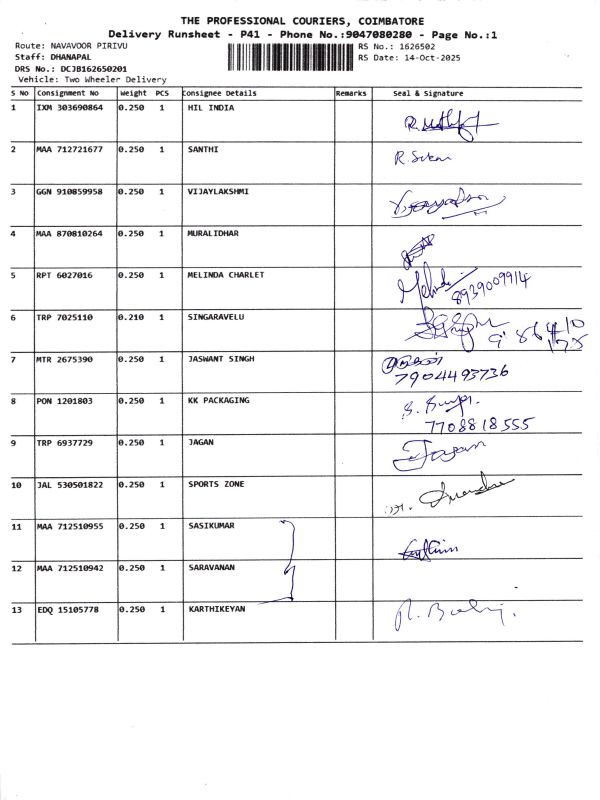 THE PROFESSIONAL COURIERS, COIMBATORE
Delivery Runsheet - P41 - Phone No.:9047080280 - Page No.:1
Route: NAVAVOOR PIRIVU RS No.: 1626502
Staff: DHANAPAL RS Date: 14-Oct-2025
DRS No.: DCJB162650201
Vehicle: Two Wheeler Delivery
S No Consignment No Weight PCS Consignee Details Remarks Seal & Signature
1 IXM 303690864 0.250 1 HIL INDIA
2 MAA 712721677 0.250 1 SANTHI
3 GGN 910859958 0.250 1 VIJAYLAKSHMI
4 MAA 870810264 0.250 1 MURALIDHAR
5 RPT 6027016 0.250 1 MELINDA CHARLET
8939009914
6 TRP 7025110 0.210 1 SINGARAVELU
7 MTR 2675390 0.250 1 JASWANT SINGH
7904493736
8 PON 1201803 0.250 1 KK PACKAGING
7708818555
9 TRP 6937729 0.250 1 JAGAN Jagan
10 JAL 530501822 0.250 1 SPORTS ZONE
11 MAA 712510955 0.250 1 SASIKUMAR
12 MAA 712510942 0.250 1 SARAVANAN
13 EDQ 15105778 0.250 1 KARTHIKEYAN